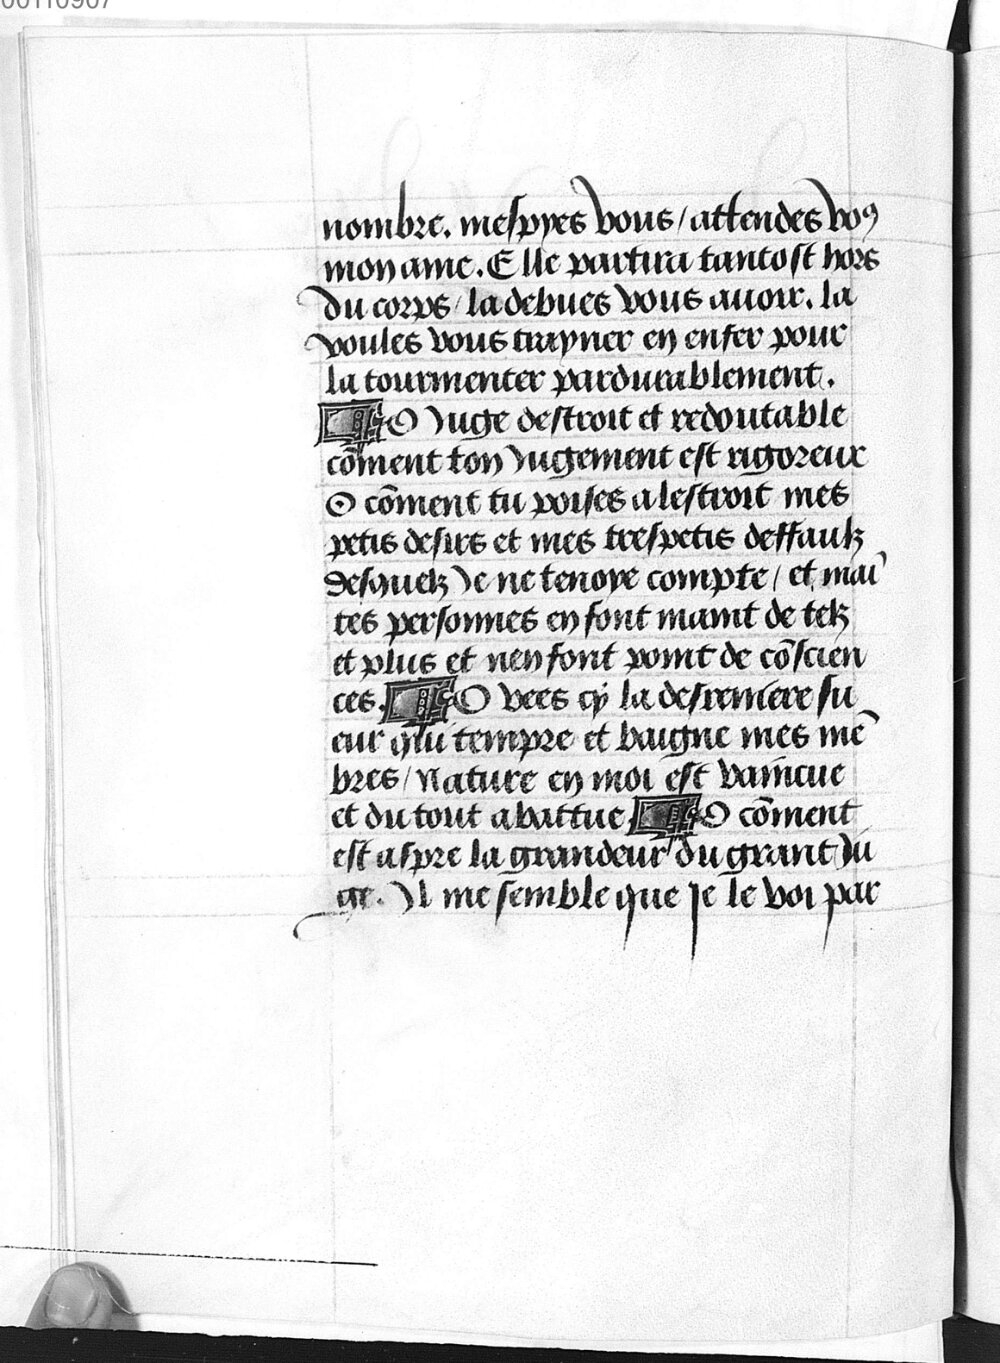 00110907
nombre. mespyes vous / attendes voꝯ
mon ame. Elle partira tantost hors
du corps / la debues vous auoir. la
voules vous trayner en enfer pour
la tourmenter pardurablement.
¶ O Juge destroit et redoutable
cõment ton Jugement est rigoreux
O cõment tu poises a lestroit mes
petis desirs et mes trespetis deffaulz
desquelz Je ne tenoye compte / et mai
tes personnes en font maint de telz
et plus et nen font point de cõscien
ces. ¶ O vees cy la desreniere su
eur qui tempre et baigne mes mẽ
bres / Nature en moi est vaincue
et du tout abattue ¶ O cõment
est aspre la grandeur du grant Ju
ge. Il me semble que je le voi par